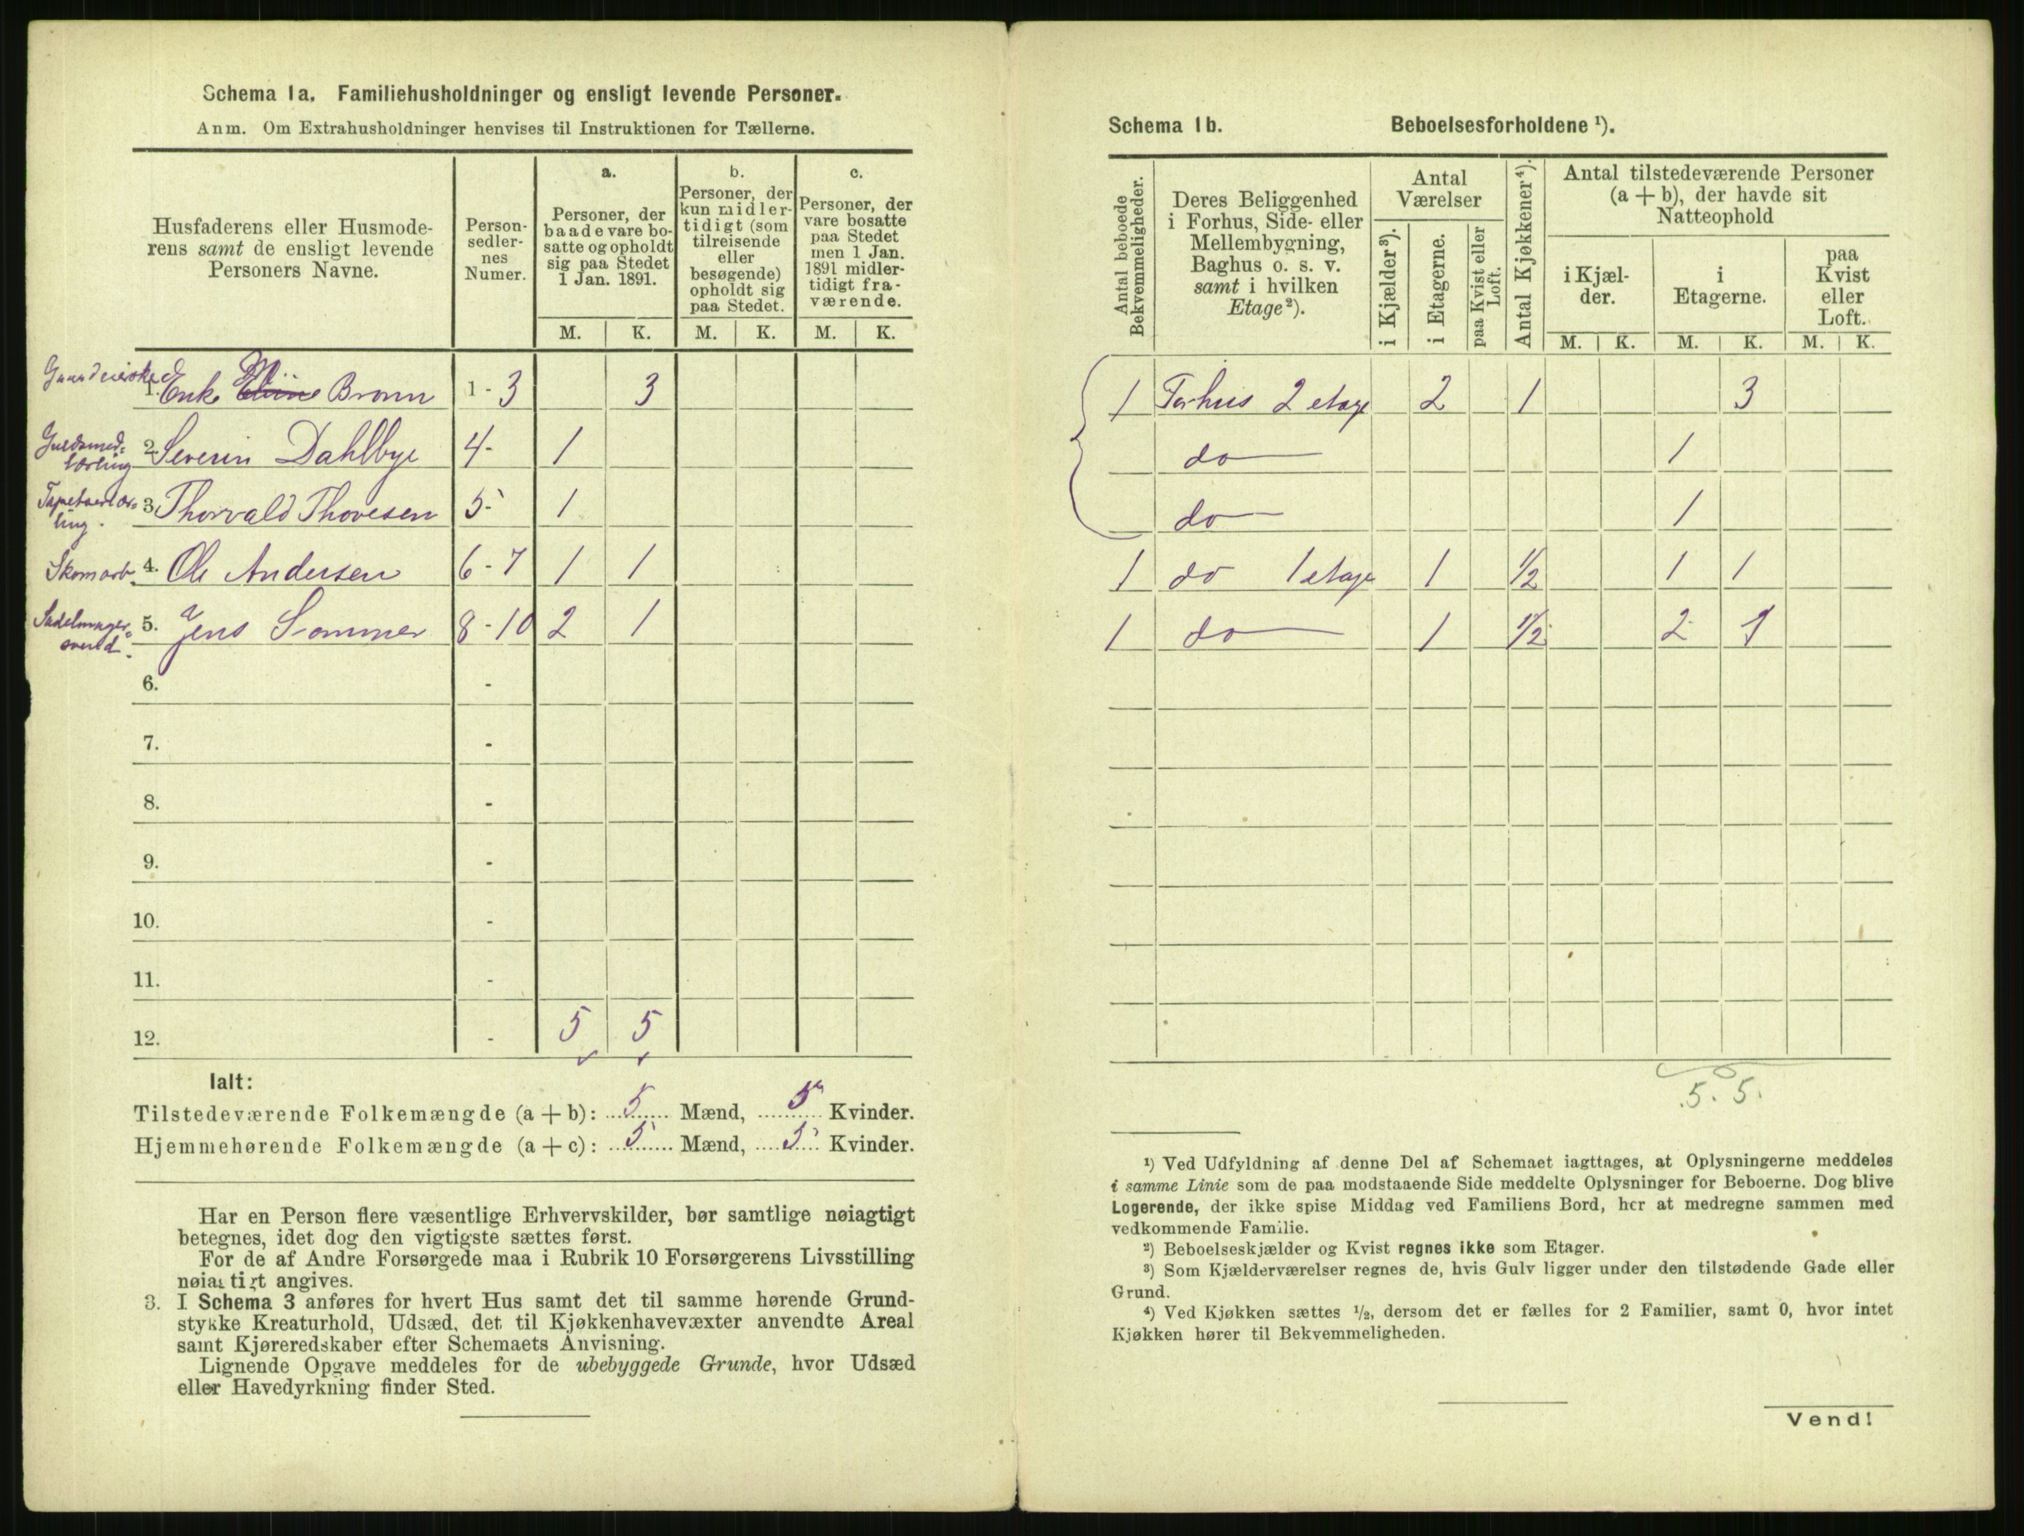 Schema 1a. Familiehusholdninger og ensligt levende Personer.
Anm. Om Extrahusholdninger henvises til Instruktionen for Tællerne.
Husfaderens eller Husmode-
rens samt de ensligt levende
Personers Navne.
Person-
sedler-
nes
Numer.
a.
Personer, der
baade vare bo-
satte og opholdt
sig paa Stedet
1 Jan. 1891.
b.
Personer, der
kun midler-
tidigt (som
tilreisende
eller
besøgende)
opholdt sig
paa Stedet.
c.
Personer, der
vare bosatte
paa Stedet
men 1 Jan.
1891 midler-
tidigt fra-
værende.
M. K. M. K. M. K.
1. Enke Bronn 1 - 3 3
Guldsmed-
lærling
2. Severin Dahlbye 4 - 1
Tapetserlær-
ling.
3. Thorvald Thovesen 5 - 1
Skomarb. 4. Ole Andersen 6 - 7 1 1
Sadelmager-
svend.
5. Jens Sommer 8 - 10 2 1
6. -
7. -
8. -
9. -
10. -
11. -
12. - 5 5
Ialt:
Tilstedeværende Folkemængde (a + b): 5 Mænd, 5 Kvinder.
Hjemmehørende Folkemængde (a + c): 5 Mænd, 5 Kvinder.
Har en Person flere væsentlige Erhvervskilder, bør samtlige nøiagtigt
betegnes, idet dog den vigtigste sættes først.
For de af Andre Forsørgede maa i Rubrik 10 Forsørgerens Livsstilling
nøiagtigt angives.
3. I Schema 3 anføres for hvert Hus samt det til samme hørende Grund-
stykke Kreaturhold, Udsæd, det til Kjøkkenhavevæxter anvendte Areal
samt Kjøreredskaber efter Schemaets Anvisning.
Lignende Opgave meddeles for de ubebyggede Grunde, hvor Udsæd
eller Havedyrkning finder Sted.
Schema 1b. Beboelsesforholdene ¹).
Antal beboede
Bekvemmeligheder.
Deres Beliggenhed
i Forhus, Side- eller
Mellembygning,
Baghus o. s. v.
samt i hvilken
Etage²).
Antal
Værelser
i Kjælder³).
i Etagerne.
paa Kvist eller
Loft.
Antal Kjøkkener⁴).
Antal tilstedeværende Personer
(a + b), der havde sit
Natteophold
i Kjæl-
der.
i
Etagerne.
paa
Kvist
eller
Loft.
M. K. M. K. M. K.
1 Forhus 2 etage 2 1 3
do 1
do 1
1 do 1 etage 1 1/2 1 1
1 do 1 1/2 2 1
5. 5.
¹) Ved Udfyldning af denne Del af Schemaet iagttages, at Oplysningerne meddeles
i samme Linie som de paa modstaaende Side meddelte Oplysninger for Beboerne. Dog blive
Logerende, der ikke spise Middag ved Familiens Bord, her at medregne sammen med
vedkommende Familie.
²) Beboelseskjælder og Kvist regnes ikke som Etager.
³) Som Kjælderværelser regnes de, hvis Gulv ligger under den tilstødende Gade eller
Grund.
⁴) Ved Kjøkken sættes ½, dersom det er fælles for 2 Familier, samt 0, hvor intet
Kjøkken hører til Bekvemmeligheden.
Vend!